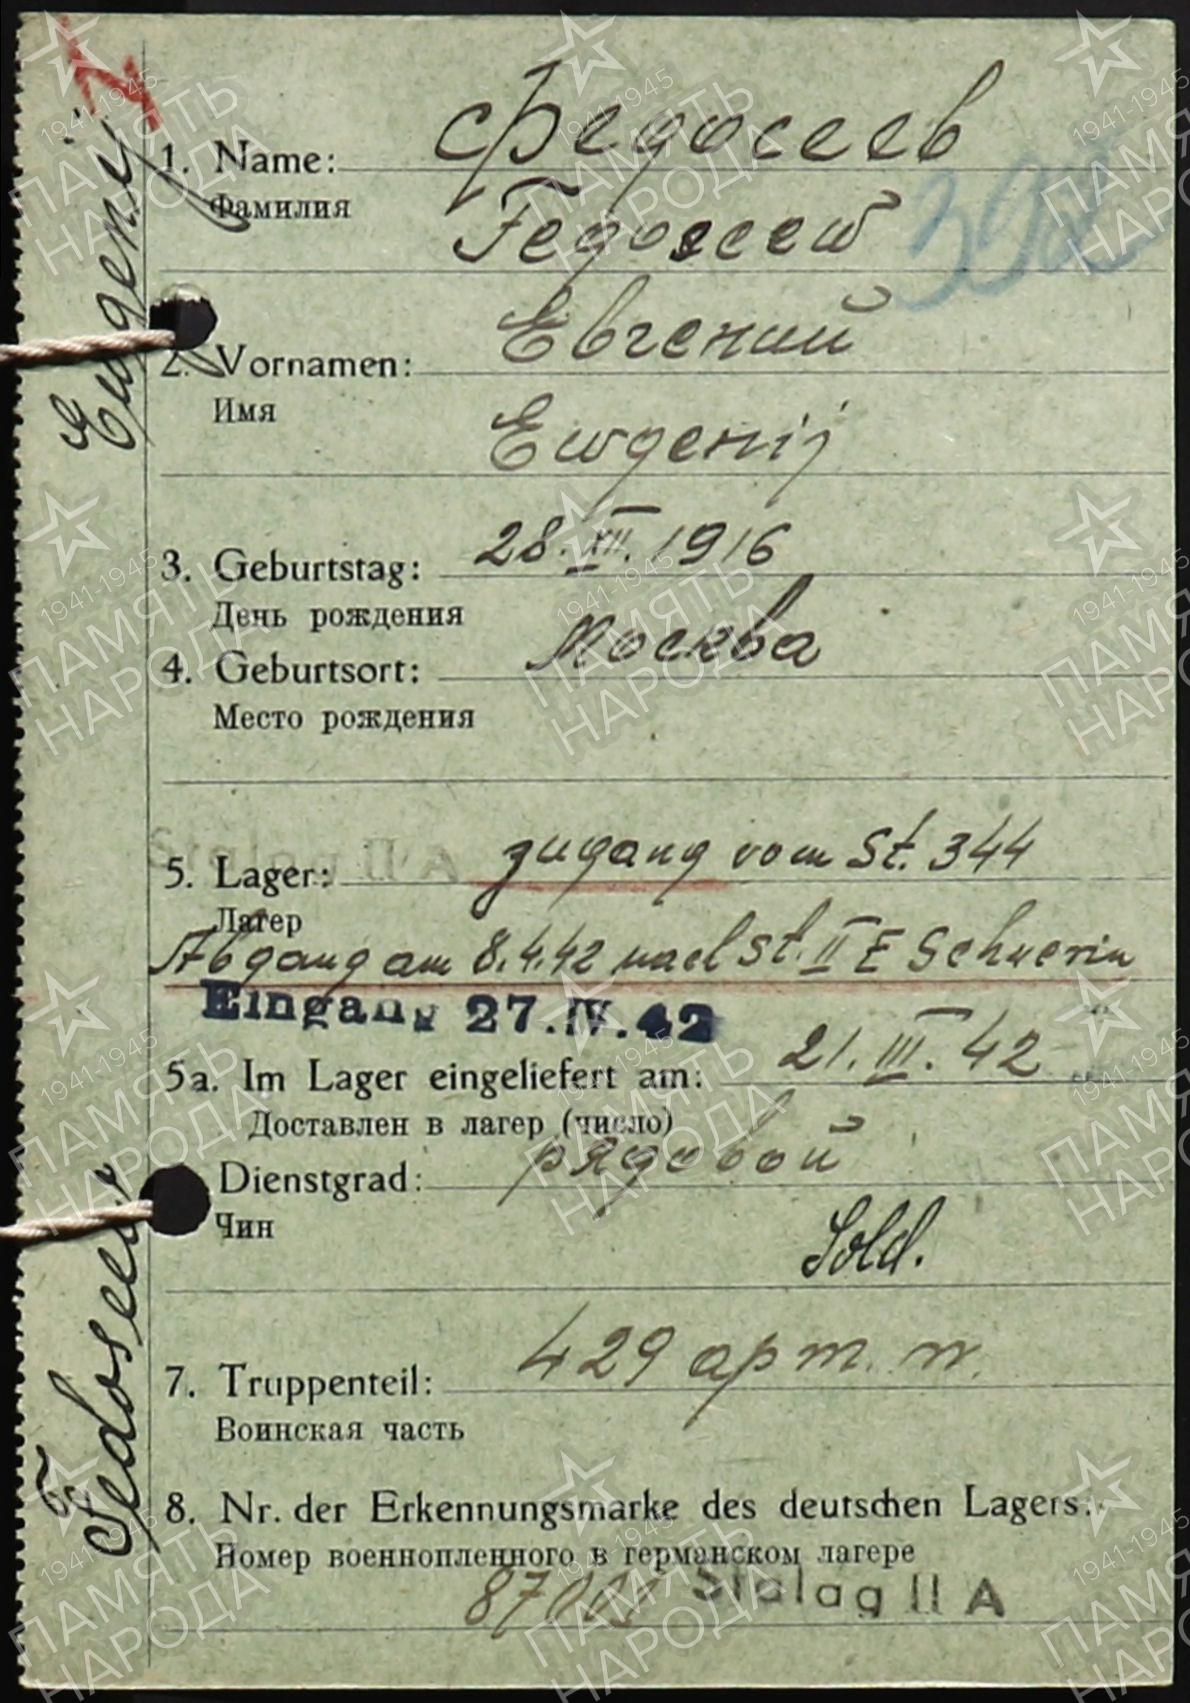 1. Name: Федосеев
Фамилия
Fedossew
2. Vornamen: Евгений
Имя
Ewgenij
3. Geburtstag: 28.XII.1916
День рождения
4. Geburtsort: Москва
Место рождения
5. Lager: Zugang vom St. 344
Лагер
Abgang am 8.4.42 nach St. II E Schwerin
Eingang 27.IV.42
5a. Im Lager eingeliefert am: 21.III.42
Доставлен в лагер (число)
Dienstgrad: рядовой
Чин
Sold.
7. Truppenteil: 429 арт. п.
Воинская часть
8. Nr. der Erkennungsmarke des deutschen Lagers:
Номер военнопленного в германском лагере
Stalag II A
Eugenij
ПАМЯТЬ
НАРОДА
1941-1945